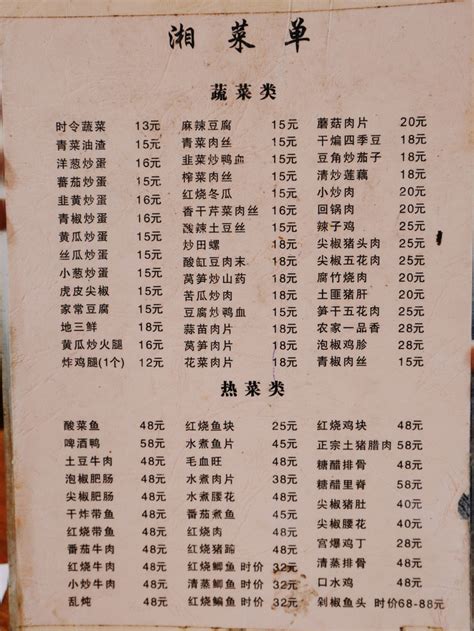 湘菜单
蔬菜类
时令蔬菜 13元 麻辣豆腐 15元 蘑菇肉片 20元
青菜油渣 15元 青菜肉丝 15元 干煸四季豆 18元
洋葱炒蛋 16元 韭菜炒鸭血 15元 豆角炒茄子 18元
蕃茄炒蛋 15元 榨菜肉丝 15元 清炒莲藕 18元
韭黄炒蛋 16元 红烧冬瓜 15元 小炒肉 20元
青椒炒蛋 16元 香干芹菜肉丝 16元 回锅肉 20元
黄瓜炒蛋 15元 酸辣土豆丝 15元 辣子鸡 25元
丝瓜炒蛋 15元 炒田螺 18元 尖椒猪头肉 25元
小葱炒蛋 15元 酸缸豆肉末 18元 尖椒五花肉 25元
虎皮尖椒 15元 莴笋炒山药 18元 腐竹烧肉 20元
家常豆腐 15元 苦瓜炒肉 18元 土匪猪肝 20元
地三鲜 18元 豆腐炒鸭血 15元 笋干五花肉 25元
黄瓜炒火腿 16元 蒜苗肉片 18元 农家一品香 28元
炸鸡腿(1个) 12元 莴笋肉片 18元 泡椒鸡胗 28元
花菜肉片 18元 青椒肉丝 15元
热菜类
酸菜鱼 48元 红烧鱼块 25元 红烧鸡块 48元
啤酒鸭 58元 水煮鱼片 45元 正宗土猪腊肉 58元
土豆牛肉 48元 毛血旺 48元 糖醋排骨 48元
泡椒肥肠 48元 水煮肉片 38元 糖醋里脊 48元
尖椒肥肠 48元 水煮腰花 48元 尖椒猪肚 40元
干炸带鱼 48元 番茄煮鱼 45元 尖椒腰花 40元
红烧带鱼 48元 红烧肉 48元 宫爆鸡丁 38元
番茄牛肉 48元 红烧猪蹄 48元 清蒸排骨 48元
红烧牛肉 48元 红烧鲫鱼 时价 32元 口水鸡 48元
小炒牛肉 48元 清蒸鲫鱼 时价 32元 剁椒鱼头 时价68-88元
乱炖 48元 红烧鳊鱼 时价 32元